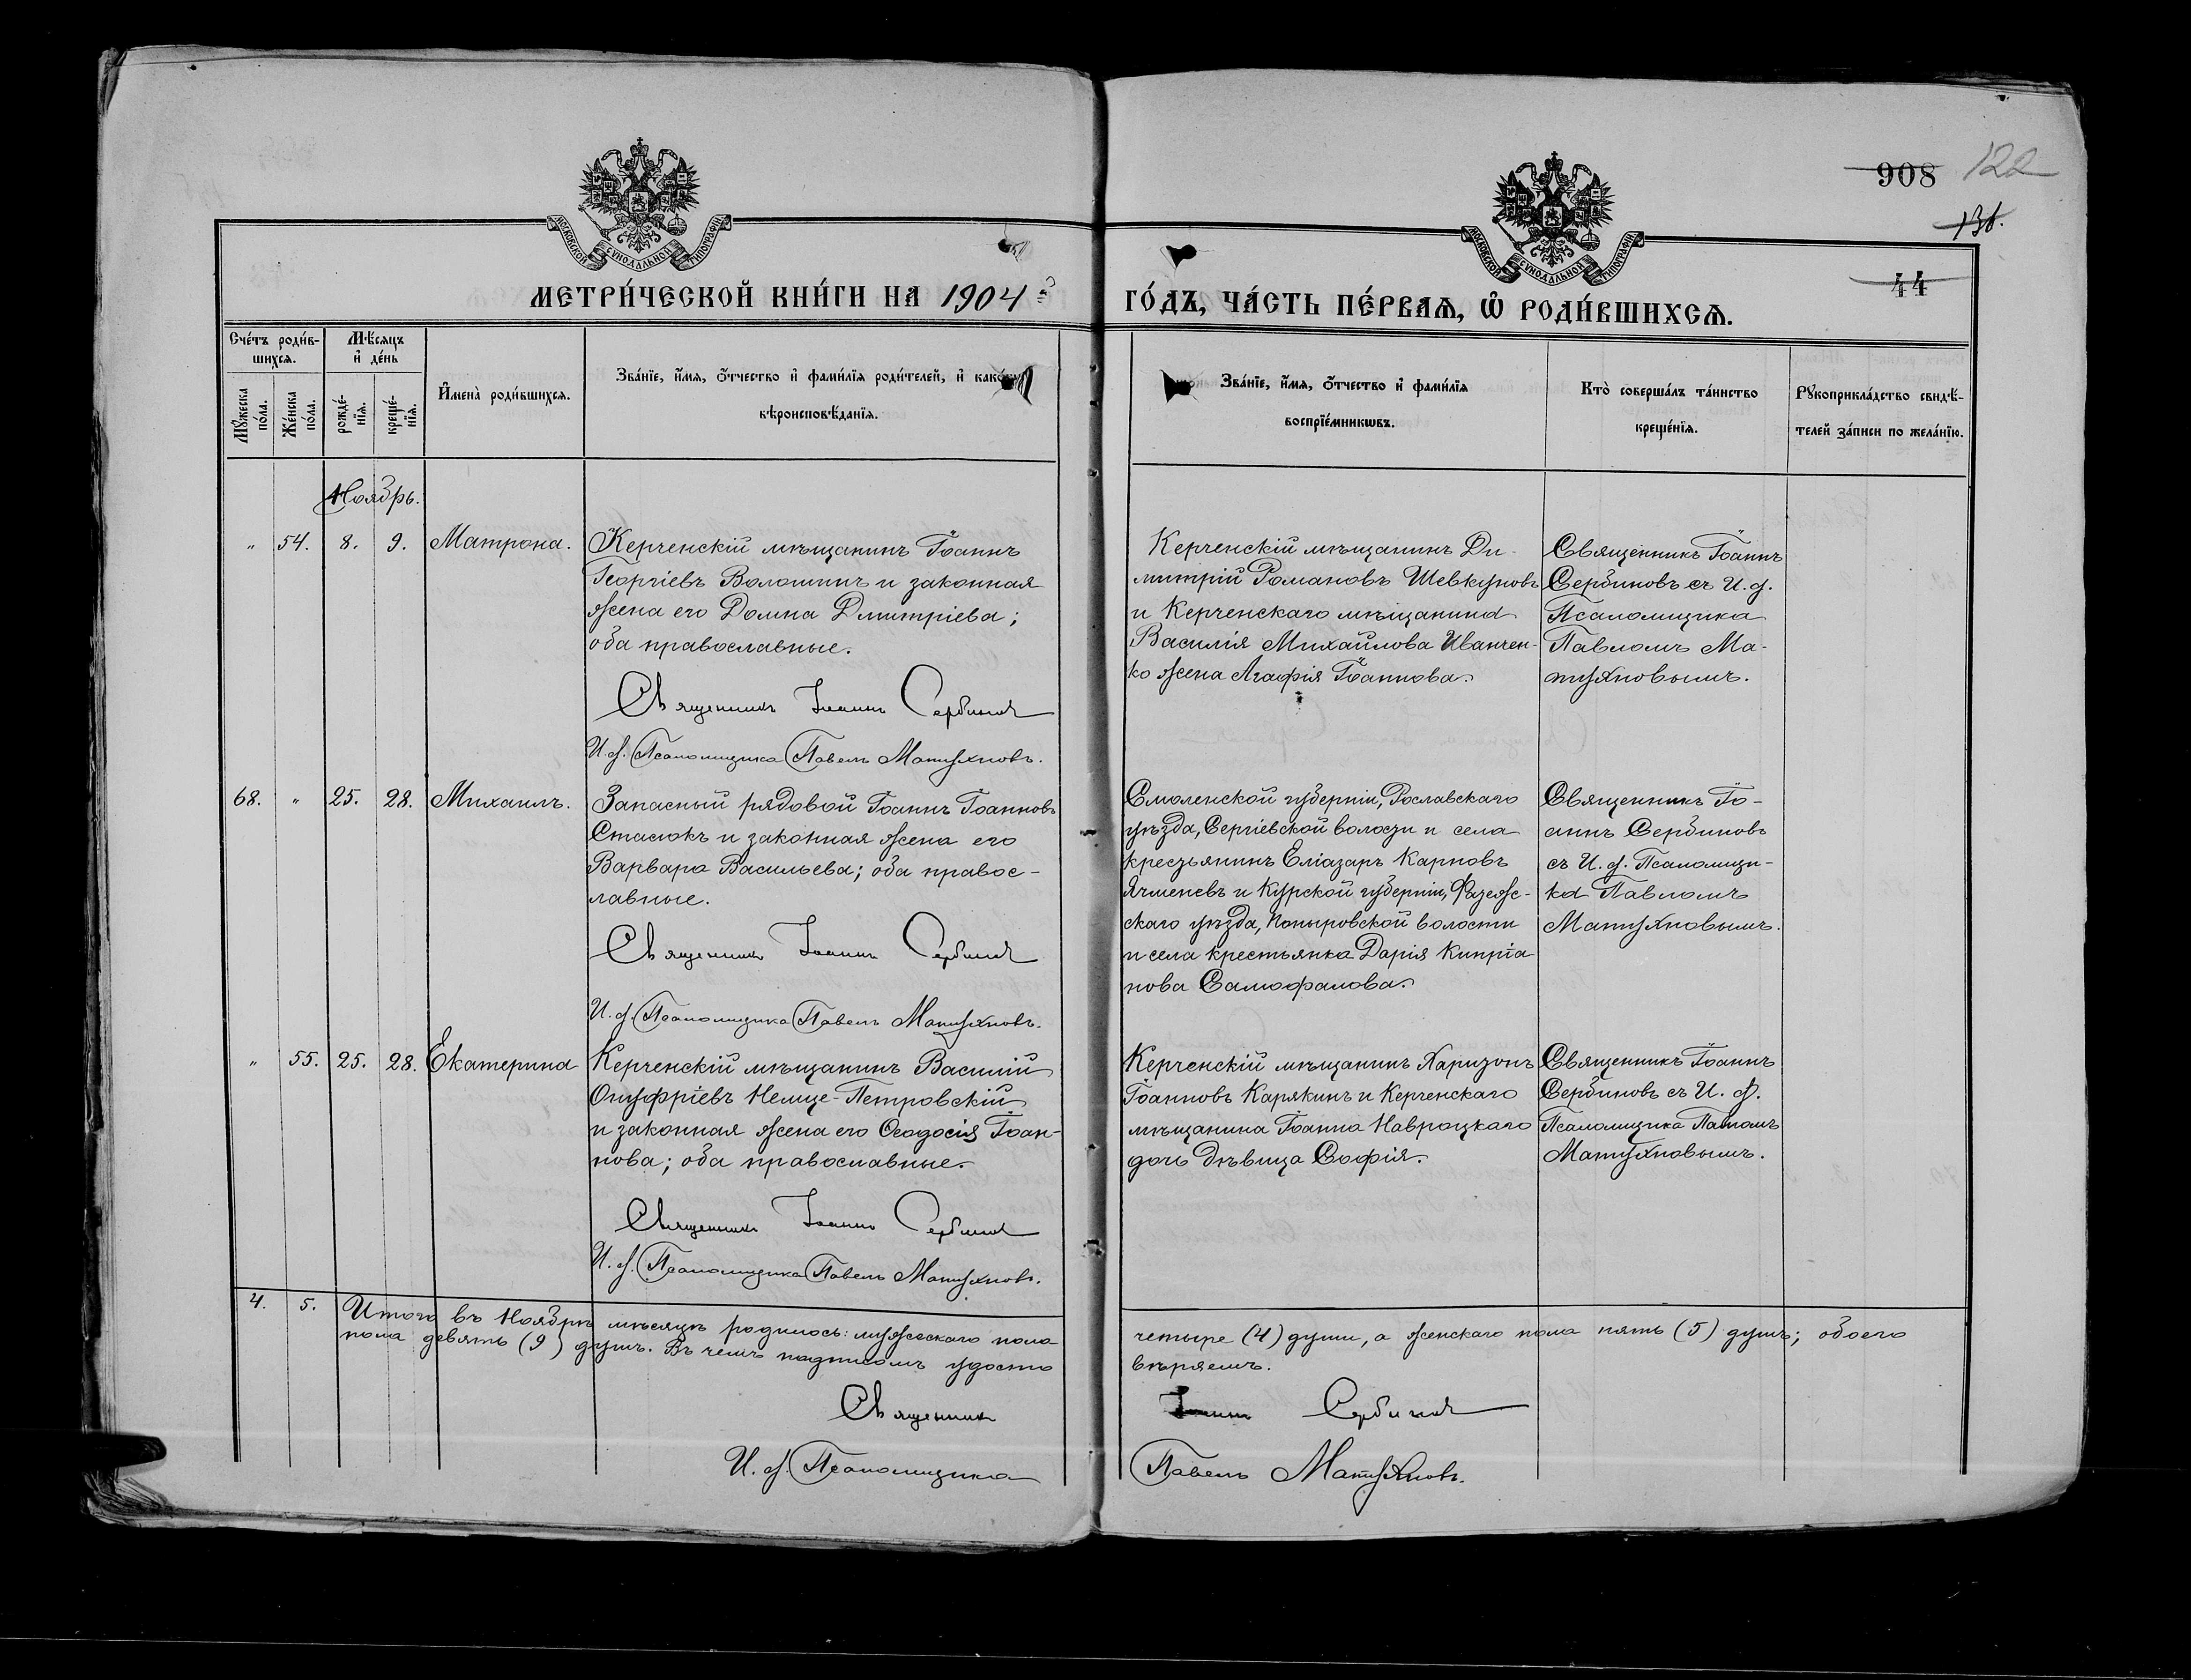 908 122
138.
44
МОСКОВСКОЙ СѴНОДАЛЬНОЙ ТИПОГРАФІИ
МОСКОВСКОЙ СѴНОДАЛЬНОЙ ТИПОГРАФІИ
МЕТРИ́ЧЕСКОЙ КНИ́ГИ НА 1904 й ГО́ДЪ, ЧА́СТЬ ПЕ́РВАѦ, Ѡ҆ РОДИ́ВШИХСѦ.
Сче́тъ роди́в-
шихся.
Мѣ́сяцъ
и҆ де́нь
Мꙋ́жеска по́ла.
Же́нска по́ла.
рожде́-
нїя.
креще́-
нїя.
И҆мена̀ роди́вшихся.
Зва́нїе, и҆́мя, ѻ҆́тчество и҆ фами́лїя роди́телей, и҆ како́гѡ
вѣроисповѣ́данїя.
Зва́нїе, и҆́мя, ѻ҆́тчество и҆ фами́лїя
воспрїе́мникѡвъ.
Кто̀ соверша́лъ та́инство
креще́нїя.
Рꙋкоприкла́дство свидѣ́-
телей за́писи по жела́нїю.
Ноябрь.
" 54. 8. 9. Матрона.
Керченскій мѣщанинъ Іоаннъ
Георгіевъ Волошинъ и законная
жена его Домна Дмитріева;
оба православные.
Священникъ Іоаннъ Сербиновъ
И. д. Псаломщика Павелъ Матухновъ.
Керченскій мѣщанинъ Ди-
митрій Романовъ Шевкуновъ
и Керченскаго мѣщанина
Василія Михайлова Иванчен-
ко жена Агафія Іоаннова.
Священникъ Іоаннъ
Сербиновъ съ И. д.
Псаломщика
Павломъ Ма-
тухновымъ.
68. " 25. 28. Михаилъ.
Запасный рядовой Іоаннъ Іоанновъ
Стасюкъ и законная жена его
Варвара Васильева; оба правос-
лавные.
Священникъ Іоаннъ Сербиновъ
И. д. Псаломщика Павелъ Матухновъ.
Смоленской губерніи, Рославскаго
уѣзда, Сергіевской волости и села
крестьянинъ Еліазаръ Карповъ
Ячменевъ и Курской губерніи, Фатеж-
скаго уѣзда, Поныровской волости
и села крестьянка Дарія Кипріа
нова Самофалова.
Священникъ Іо-
аннъ Сербиновъ
съ И. д. Псаломщи-
ка Павломъ
Матухновымъ.
" 55. 25. 28. Екатерина
Керченскій мѣщанинъ Василій
Онуфріевъ Немце-Петровскій
и законная жена его Ѳеодосія Іоан-
нова; оба православные.
Священникъ Іоаннъ Сербиновъ
И. д. Псаломщика Павелъ Матухновъ.
Керченскій мѣщанинъ Харизонъ
Іоанновъ Карякинъ и Керченскаго
мѣщанина Іоанна Навроцкаго
дочь дѣвица Софія.
Священникъ Іоаннъ
Сербиновъ съ И. д.
Псаломщика Павломъ
Матухновымъ.
4. 5. Итого въ Ноябрѣ мѣсяцѣ родилось: мужескаго пола четыре (4) души, а женскаго пола пять (5) душъ; обоего
пола девять (9) душъ. Въ чемъ подписомъ удосто вѣряемъ.
Священникъ Іоаннъ Сербиновъ
И. д. Псаломщика Павелъ Матухновъ.